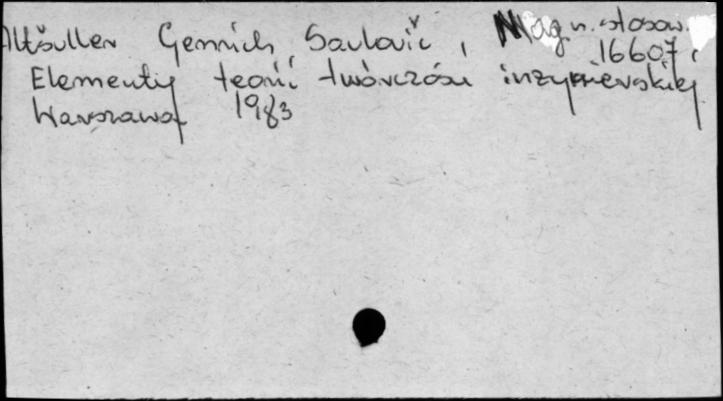 Altšuller Genrich Saulovič, Mag. n. stosow.
16607
Elementy teorii twórczości inżynierskiej
Warszawa 1983